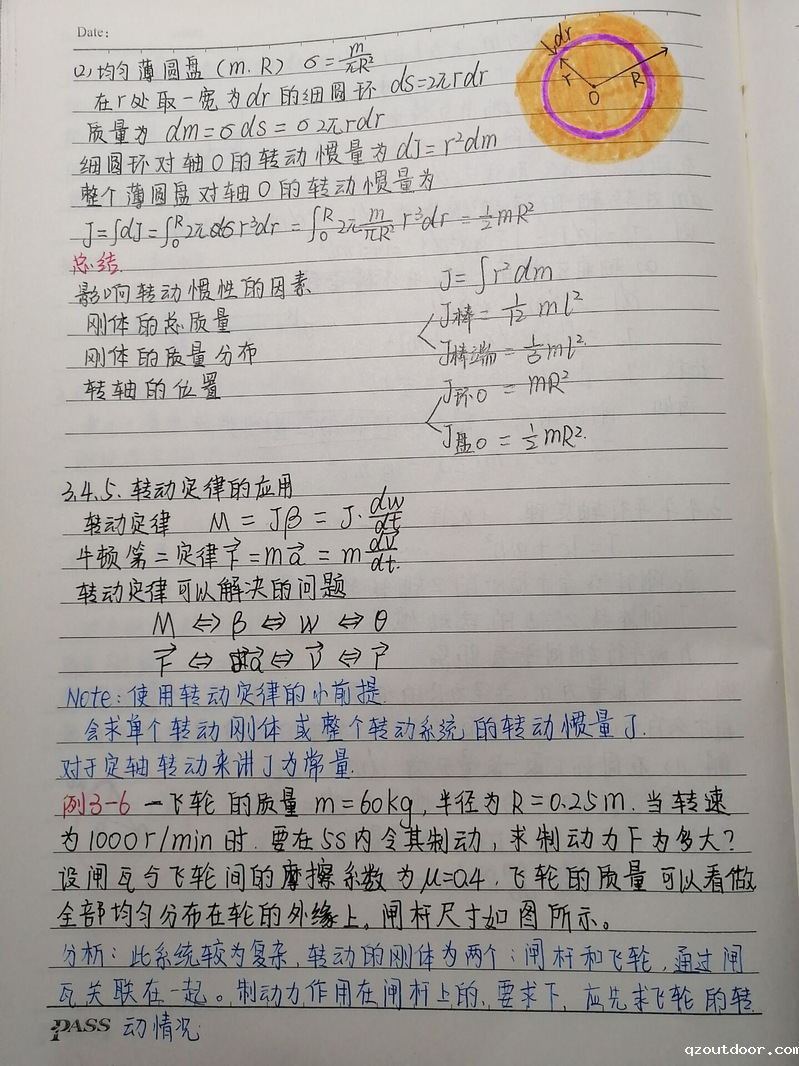 Date:
(2) 均匀薄圆盘 (m.R) σ = m/πR²
在r处取一宽为dr的细圆环 ds=2πrdr
质量为 dm=σds=σ2πrdr
细圆环对轴O的转动惯量为dJ=r²dm
整个薄圆盘对轴O的转动惯量为
J=∫dJ=∫₀ᴿ2πσr³dr = ∫₀ᴿ2π m/πR² r³dr = ½mR²
dr
r
R
O
总结.
影响转动惯性的因素
刚体的总质量
刚体的质量分布
转轴的位置
J=∫r²dm
J棒 = 1/12 ml²
J棒端 = 1/3 ml².
J环O = mR²
J盘O = ½mR².
3.4.5. 转动定律的应用
转动定律 M = Jβ = J·dw/dt
牛顿第二定律F⃗=ma⃗ = m dv⃗/dt.
转动定律可以解决的问题
M ⇔ β ⇔ w ⇔ θ
F⃗ ⇔ a⃗ ⇔ v⃗ ⇔ r⃗
Note: 使用转动定律的小前提.
会求单个转动刚体或整个转动系统的转动惯量J.
对于定轴转动来讲J为常量.
例3-6 一飞轮的质量 m=60kg, 半径为R=0.25m. 当转速
为1000r/min时. 要在5S内令其制动, 求制动力F为多大?
设闸瓦与飞轮间的摩擦系数为μ=0.4. 飞轮的质量可以看做
全部均匀分布在轮的外缘上。闸杆尺寸如图所示。
分析: 此系统较为复杂, 转动的刚体为两个: 闸杆和飞轮, 通过闸
瓦关联在一起。制动力作用在闸杆上的, 要求F, 应先求飞轮的转
PASS 动情况.
qzoutdoor.com